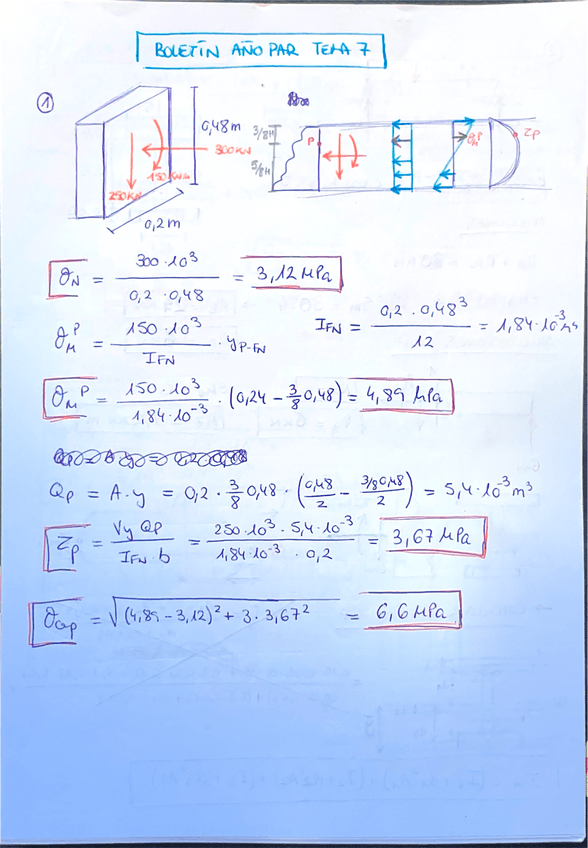 BOLETÍN AÑO PAR TEMA 7
1
0,48m
300KN
150KN·m
250KN
0,2m
3/8H
5/8H
P
σ_M^P
τ_P
σ_N = 300·10³ / 0,2·0,48 = 3,12 MPa
σ_M^P = 150·10³ / I_FN · y_P-FN
I_FN = 0,2·0,48³ / 12 = 1,84·10⁻³ m⁴
σ_M^P = 150·10³ / 1,84·10⁻³ · (0,24 - 3/8 0,48) = 4,89 MPa
Q_P = A·y = 0,2 · 3/8 0,48 · (0,48/2 - 3/8 0,48/2) = 5,4·10⁻³ m³
τ_P = V_y Q_P / I_FN · b = 250·10³ · 5,4·10⁻³ / 1,84·10⁻³ · 0,2 = 3,67 MPa
σ_eqp = √((4,89 - 3,12)² + 3 · 3,67²) = 6,6 MPa